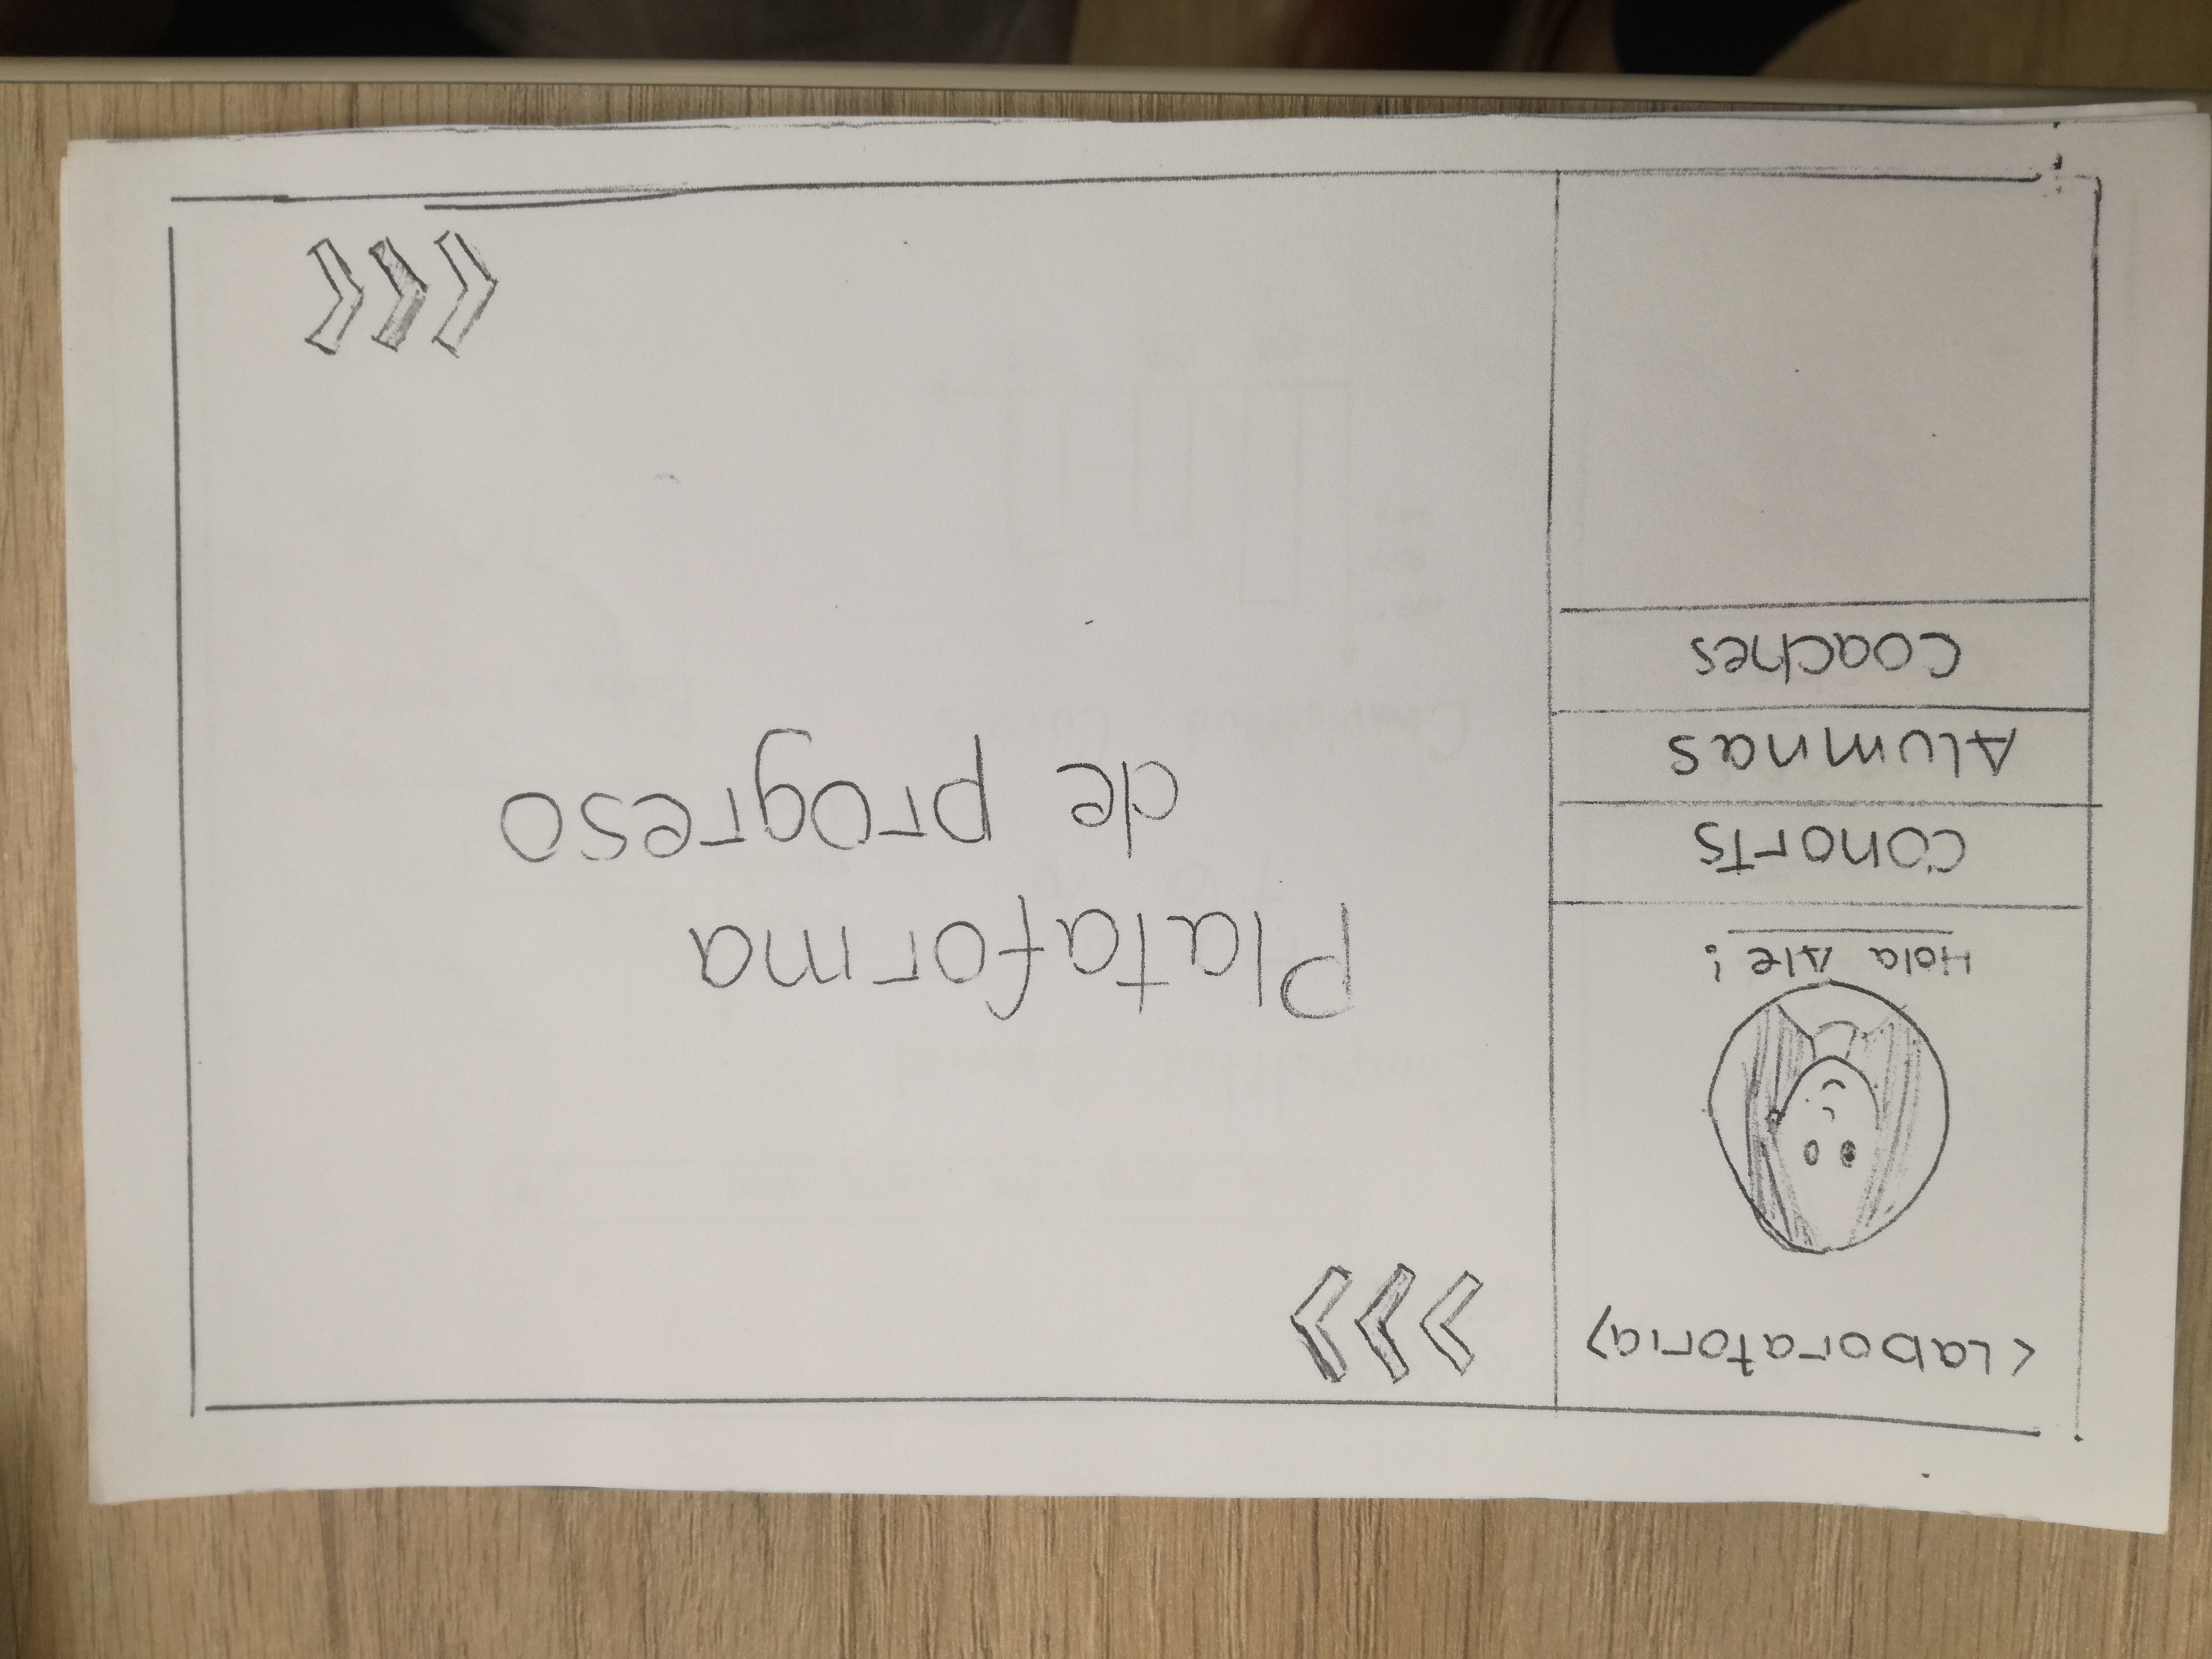 <Laboratoria>
Hola Ale!
Cohorts
Alumnas
Coaches
Plataforma
de progreso